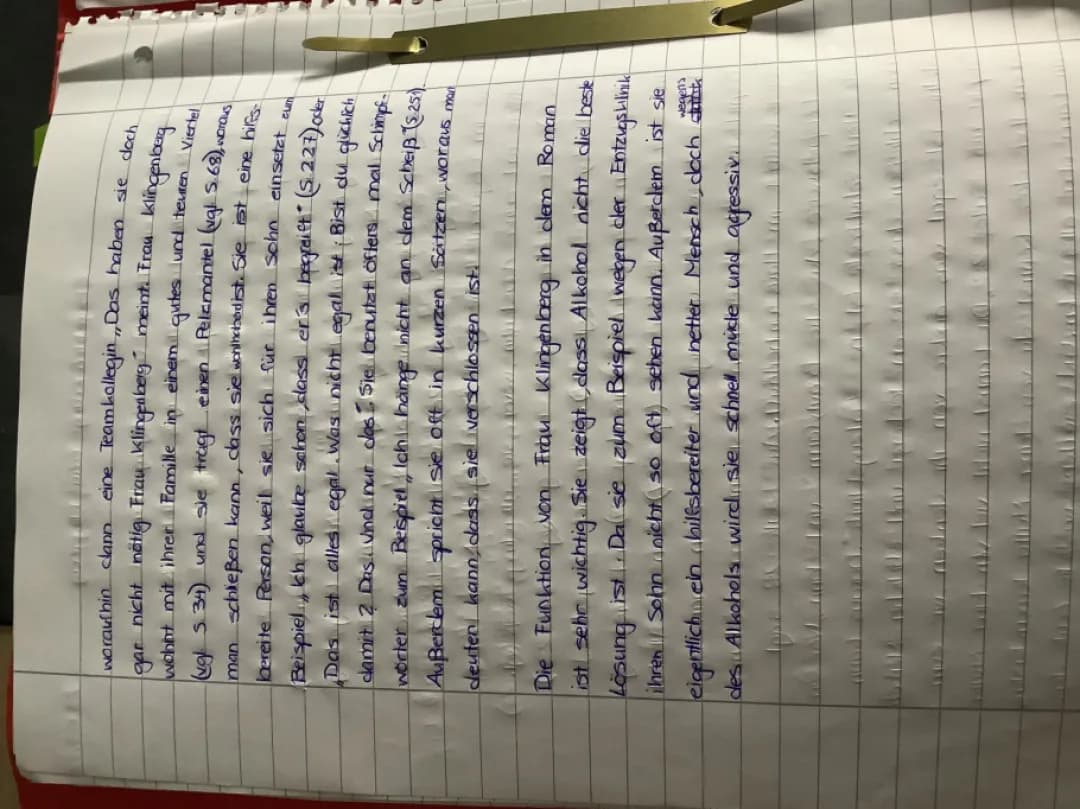 woraufhin dann eine Teamkollegin „Das haben sie doch
gar nicht nötig Frau Klingenberg" meint. Frau Klingenberg
wohnt mit ihrer Familie in einem gutes und teuren Viertel
(vgl S. 34) und sie tragt einen Pelzmantel (vgl S. 68), woraus
man schließen kann, dass sie wohlhabend ist. Sie ist eine hilfs-
bereite Person, weil sie sich für ihren Sohn einsetzt zum
Beispiel „Ich glaube schon, dass er's begreift" (S. 227) oder
„Das ist alles egal. Was nicht egal ist: Bist du glücklich
damit? Das. Und nur das". Sie benutzt öfters mal Schimpf-
wörter zum Beispiel „Ich hänge nicht an dem Scheiß" (S. 251).
Außerdem spricht sie oft in kurzen Sätzen, woraus man
deuten kann, dass sie verschlossen ist.
Die Funktion von Frau Klingenberg in dem Roman
ist sehr wichtig. Sie zeigt, dass Alkohol nicht die beste
Lösung ist. Da sie zum Beispiel wegen der Entzugsklinik
ihren Sohn nicht so oft sehen kann. Außerdem ist sie
eigentlich ein hilfsbereiter und netter Mensch, doch wegen
des Alkohols wird sie schnell müde und agressiv.